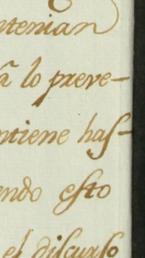 ntenian
â lo preve-
ntiene has-
endo esto
el discurso